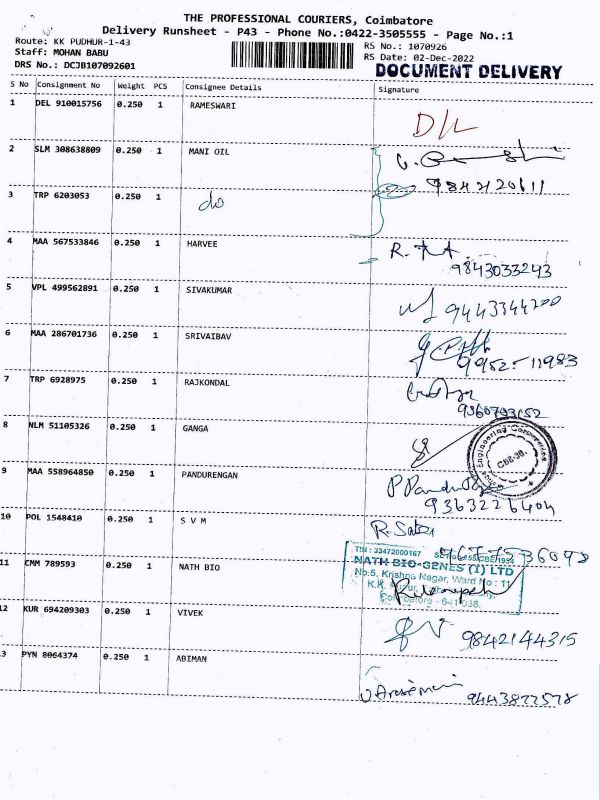 THE PROFESSIONAL COURIERS, Coimbatore
Delivery Runsheet - P43 - Phone No.:0422-3505555 - Page No.:1
Route: KK PUDHUR-1-43
Staff: MOHAN BABU
DRS No.: DCJB107092601
RS No.: 1070926
RS Date: 02-Dec-2022
DOCUMENT DELIVERY
S No Consignment No Weight PCS Consignee Details Signature
1 DEL 910015756 0.250 1 RAMESWARI D/L
2 SLM 308638809 0.250 1 MANI OIL
3 TRP 6203053 0.250 1 do
4 MAA 567533846 0.250 1 HARVEE
9843033243
5 VPL 499562891 0.250 1 SIVAKUMAR
9443344200
6 MAA 286701736 0.250 1 SRIVAIBAV
9952-11983
7 TRP 6928975 0.250 1 RAJKONDAL
9360793152
8 NLM 51105326 0.250 1 GANGA
CBE-38.
9 MAA 558964850 0.250 1 PANDURENGAN
9363226404
10 POL 1548410 0.250 1 S V M
TIN : 33472000167
11 CMM 789593 0.250 1 NATH BIO
NATH BIO-GENES (I) LTD
No.5, Krishna Nagar, Ward No : 11
Coimbatore - 641 038.
12 KUR 694209303 0.250 1 VIVEK
9842144315
13 PYN 8064374 0.250 1 ABIMAN
9443877578